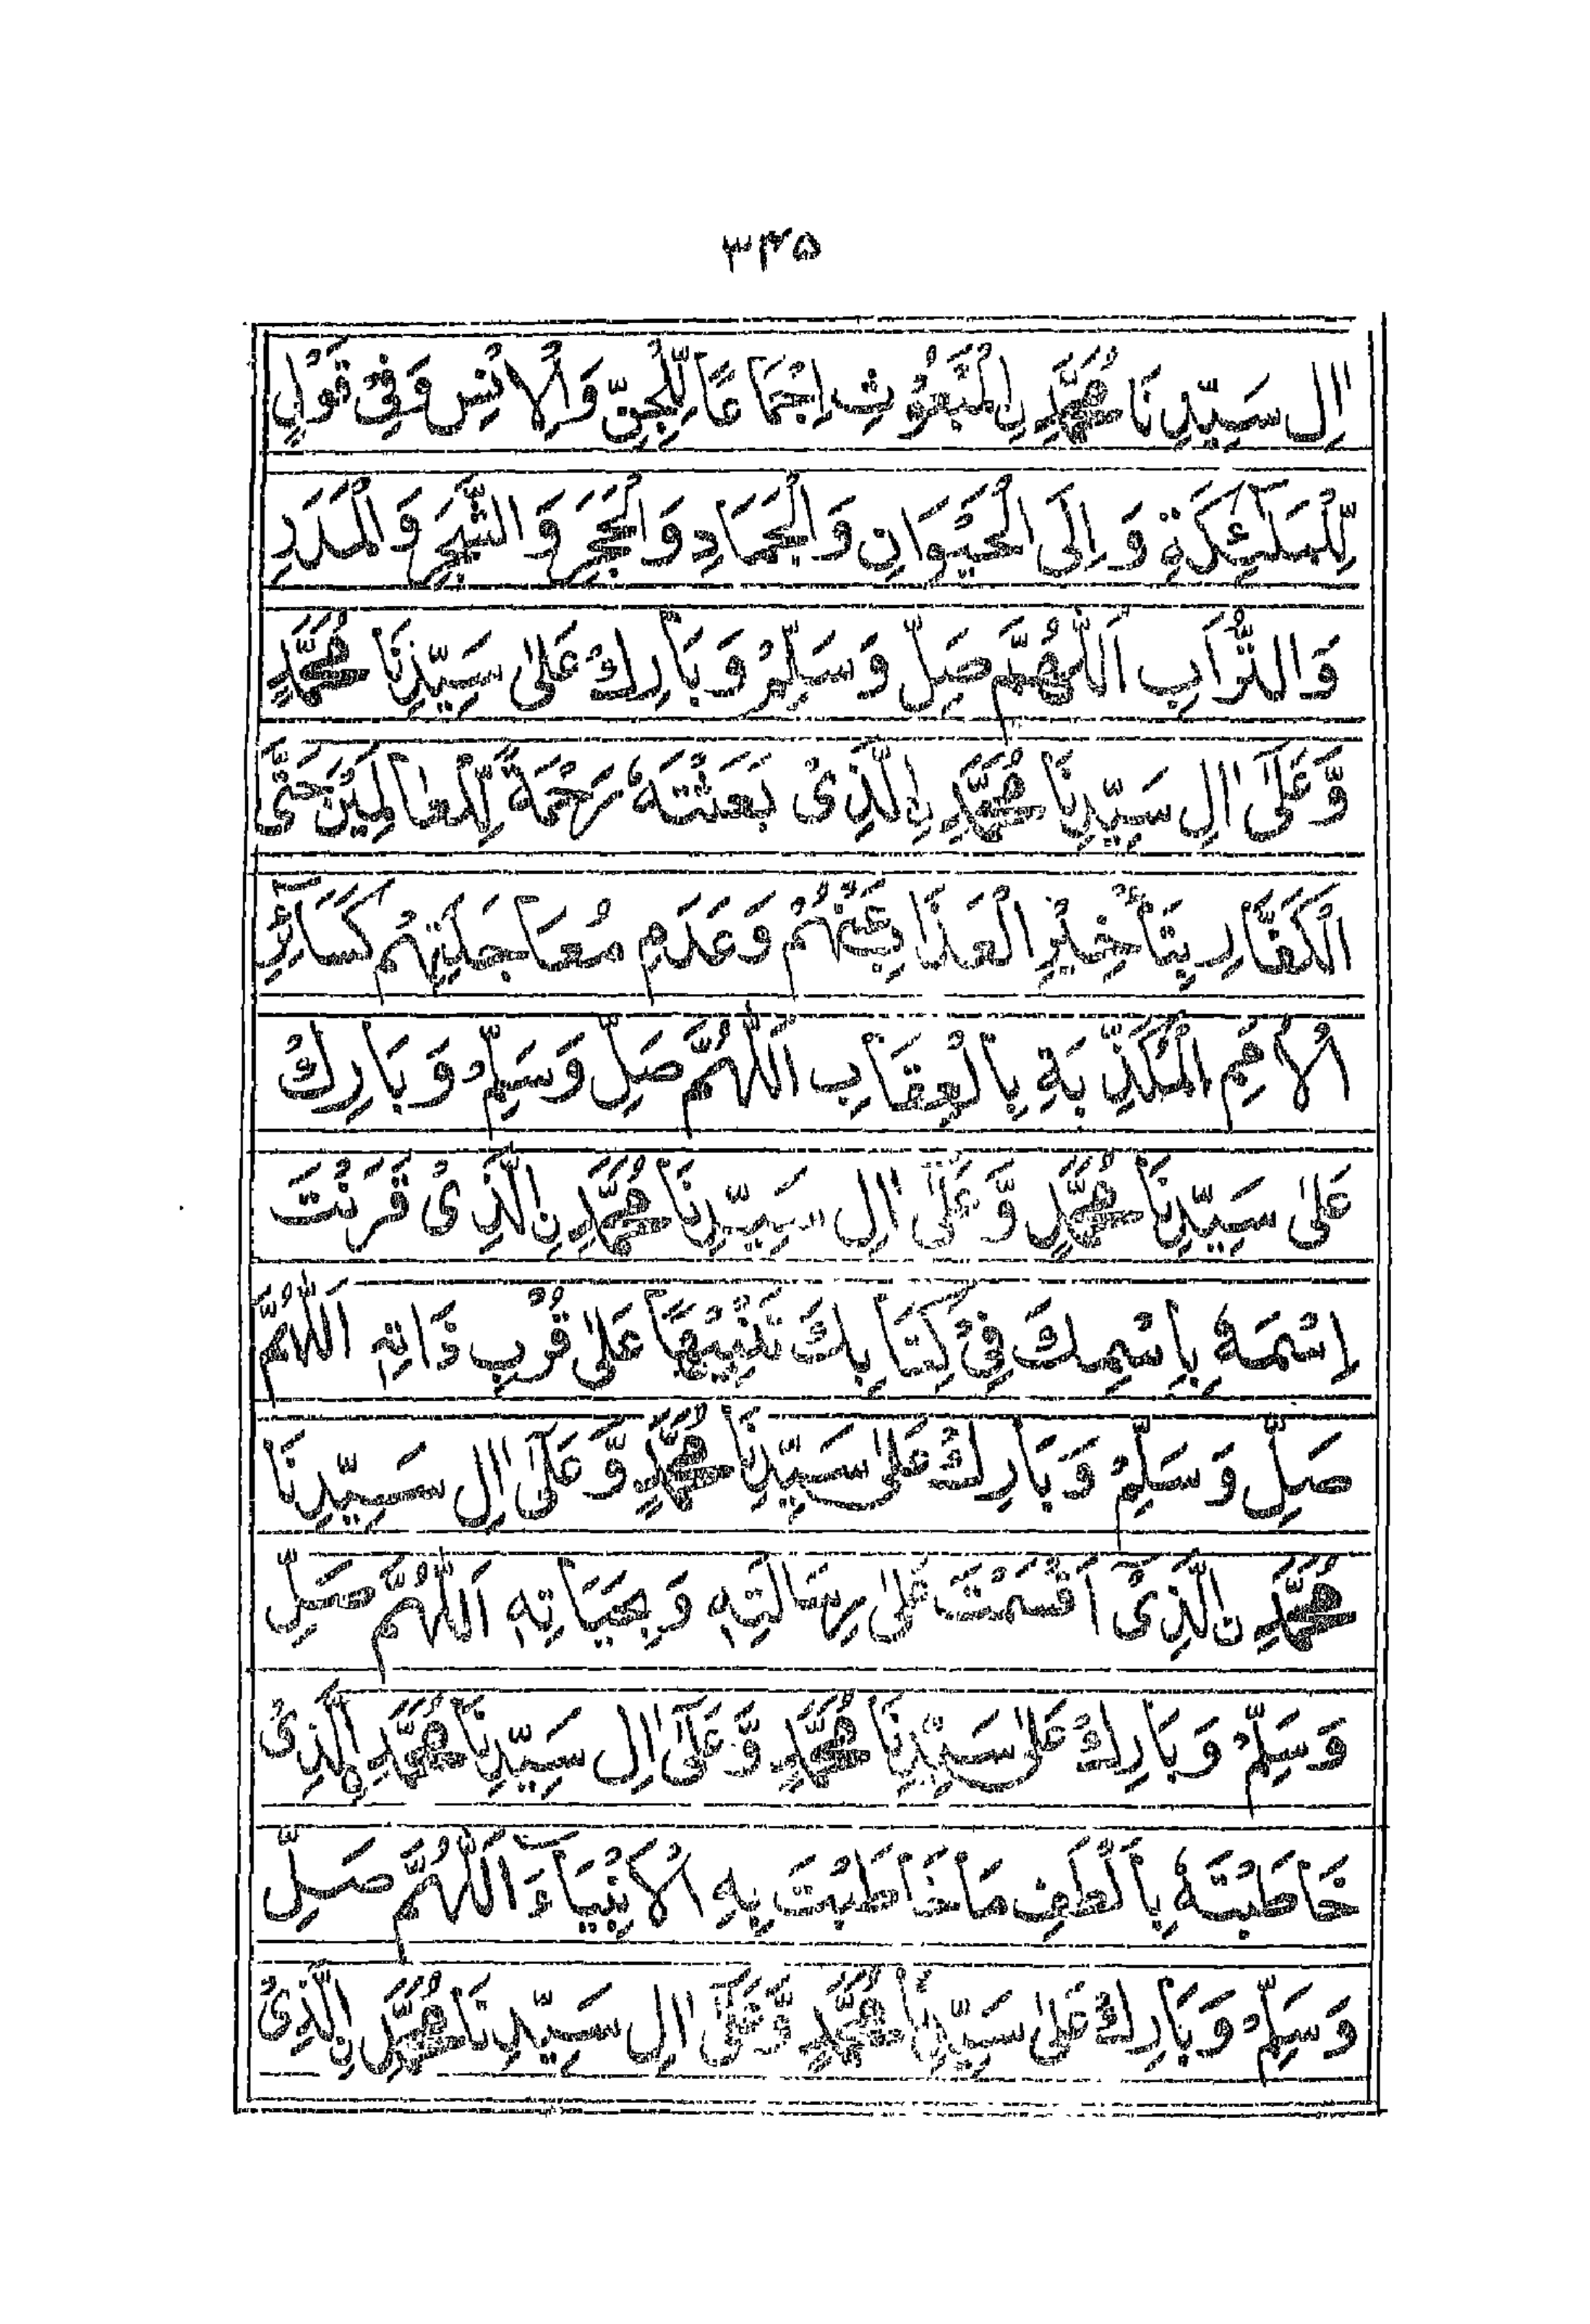 ۳۳۵
اٰلِ سَيِّدِنَا مُحَمَّدِ نِ الْمَبْعُوْثِ اِجْمَاعًا لِّلْجِنِّ وَالْاِنْسِ وَفِیْ قَوْلٍ
لِّلْمَلٰٓئِكَةِ وَاِلَی الْحَيْوَانِ وَالْجَمَادِ وَالْحَجَرِ وَالشَّجَرِ وَالْمَدَرِ
وَالتُّرَابِ اَللّٰهُمَّ صَلِّ وَسَلِّمْ وَبَارِكْ عَلٰی سَيِّدِنَا مُحَمَّدٍ
وَّعَلٰٓی اٰلِ سَيِّدِنَا مُحَمَّدِ نِ الَّذِیْ بَعَثْتَهٗ رَحْمَةً لِّلْعَالَمِيْنَ حَتّٰی
الْكَفَّارِ بِتَأْخِيْرِ الْعَذَابِ عَنْهُمْ وَعَدَمِ مُعَاجَلَتِهِمْ كَسَآئِرِ
الْاُمَمِ الْمُكَذِّبَةِ بِالْعِقَابِ اَللّٰهُمَّ صَلِّ وَسَلِّمْ وَبَارِكْ
عَلٰی سَيِّدِنَا مُحَمَّدٍ وَّعَلٰٓی اٰلِ سَيِّدِنَا مُحَمَّدِ نِ الَّذِیْ قَرَنْتَ
اِسْمَهٗ بِاسْمِكَ فِیْ كِتَابِكَ تَنْبِيْهًا عَلٰی قُرْبِ ذَاتِهٖ اَللّٰهُمَّ
صَلِّ وَسَلِّمْ وَبَارِكْ عَلٰی سَيِّدِنَا مُحَمَّدٍ وَّعَلٰٓی اٰلِ سَيِّدِنَا
مُحَمَّدِ نِ الَّذِیْٓ اَقْسَمْتَ عَلٰی رِسَالَتِهٖ وَبِحَيَاتِهٖ اَللّٰهُمَّ صَلِّ
وَسَلِّمْ وَبَارِكْ عَلٰی سَيِّدِنَا مُحَمَّدٍ وَّعَلٰٓی اٰلِ سَيِّدِنَا مُحَمَّدِ نِ الَّذِیْ
خَاطَبْتَهٗ بِاَلْطَفِ مَا خَاطَبْتَ بِهِ الْاَنْبِيَآءَ اَللّٰهُمَّ صَلِّ
وَسَلِّمْ وَبَارِكْ عَلٰی سَيِّدِنَا مُحَمَّدٍ وَّعَلٰٓی اٰلِ سَيِّدِنَا مُحَمَّدِ نِ الَّذِیْ